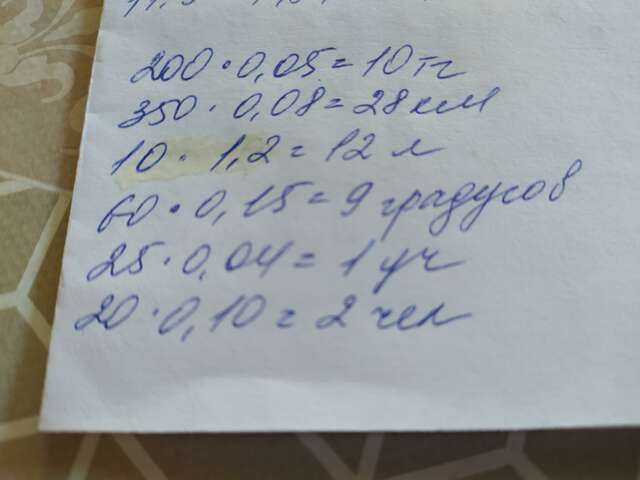 200 · 0,05 = 10 тг
350 · 0,08 = 28 км
10 · 1,2 = 12 л
60 · 0,15 = 9 градусов
25 · 0,04 = 1 уч
20 · 0,10 = 2 чел